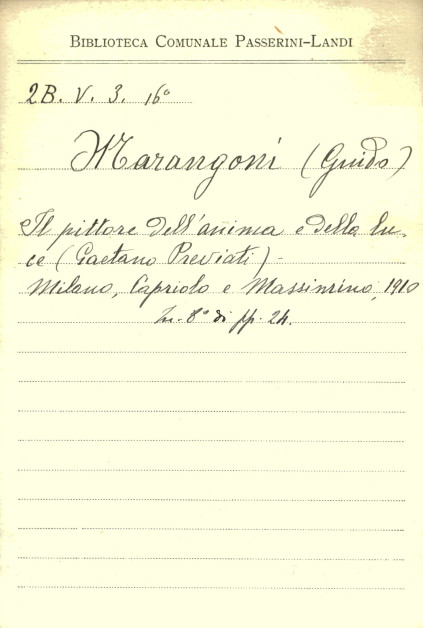 BIBLIOTECA COMUNALE PASSERINI-LANDI
2B. V. 3. 16°
Marangoni (Guido)
Il pittore dell'anima e della lu-
ce (Gaetano Previati) -
Milano, Capriolo e Massimino, 1910
In-8° di pp. 24.